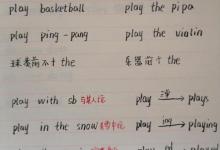 play basketball play the pipa
play ping-pang play the violin
球类前不十the 乐器前十the
play with sb 与某人玩 play 三单→ plays
play in the snow 在雪中玩 play ing→ playing